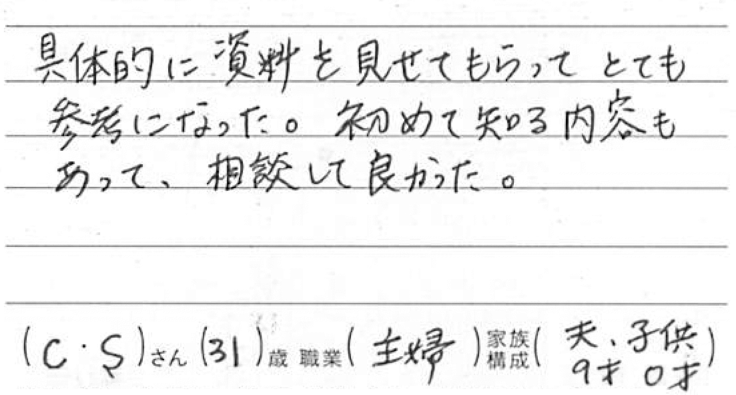 具体的に資料を見せてもらってとても
参考になった。初めて知る内容も
あって、相談して良かった。
(C・S)さん(31)歳 職業(主婦)家族構成(夫、子供 9才 0才)